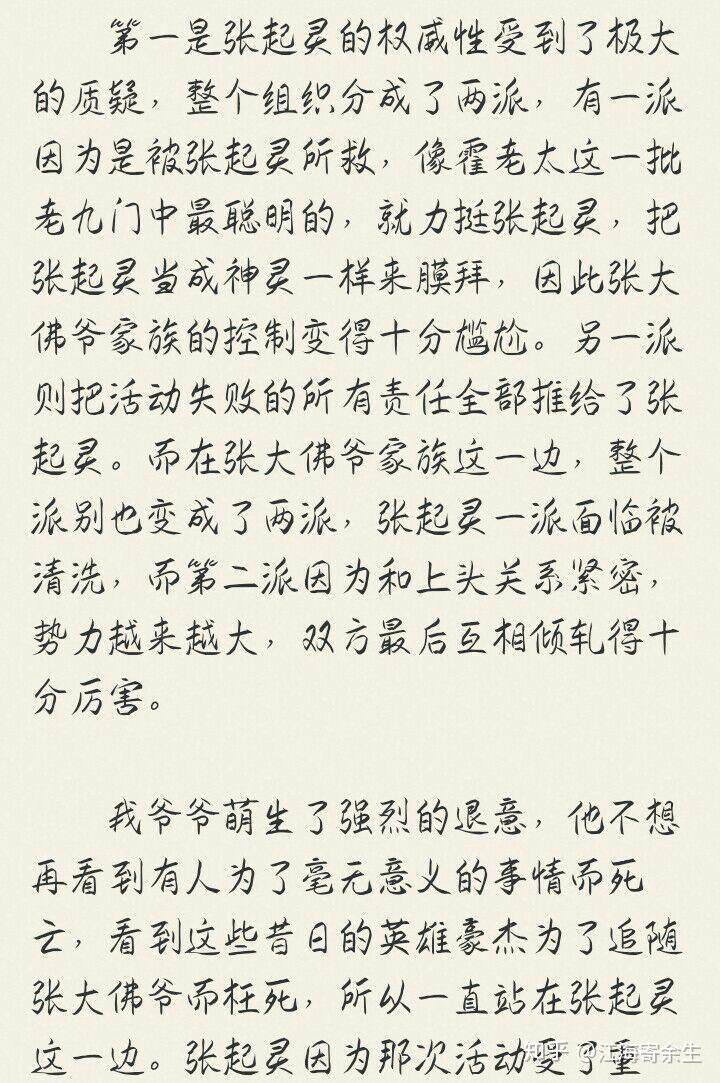 第一是张起灵的权威性受到了极大
的质疑，整个组织分成了两派，有一派
因为是被张起灵所救，像霍老太这一批
老九门中最聪明的，就力挺张起灵，把
张起灵当成神灵一样来膜拜，因此张大
佛爷家族的控制变得十分尴尬。另一派
则把活动失败的所有责任全部推给了张
起灵。而在张大佛爷家族这一边，整个
派别也变成了两派，张起灵一派面临被
清洗，而第二派因为和上头关系紧密，
势力越来越大，双方最后互相倾轧得十
分厉害。
我爷爷萌生了强烈的退意，他不想
再看到有人为了毫无意义的事情而死
亡，看到这些昔日的英雄豪杰为了追随
张大佛爷而枉死，所以一直站在张起灵
这一边。张起灵因为那次活动受了重
知乎 @江海寄余生